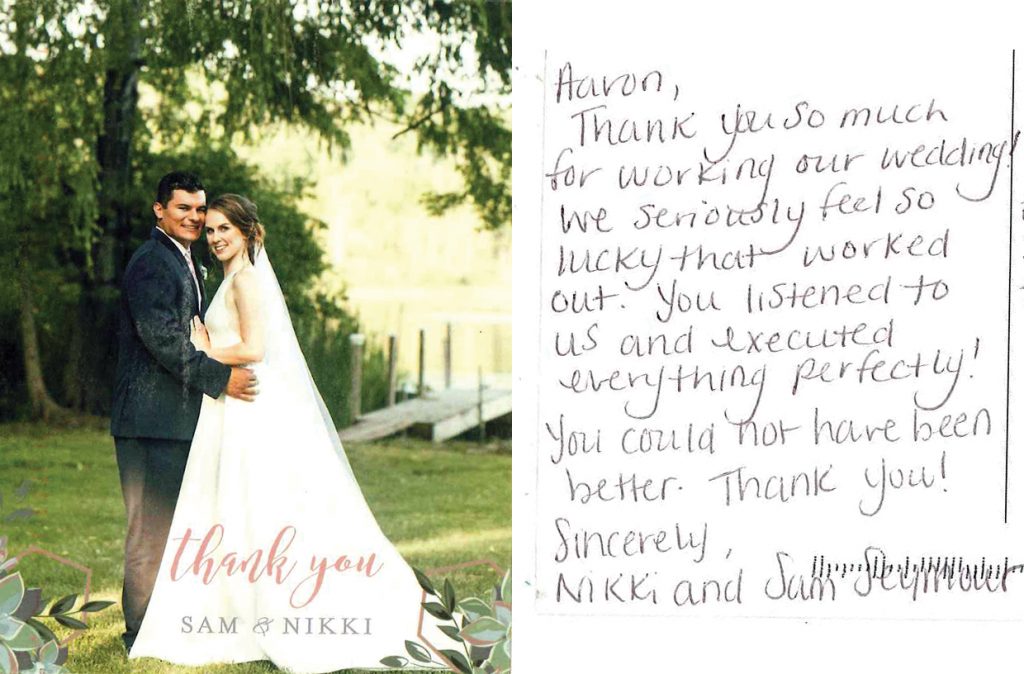 thank you
SAM & NIKKI
Aaron,
Thank you so much
for working our wedding!
We seriously feel so
lucky that worked
out. You listened to
us and executed
everything perfectly!
You could not have been
better. Thank you!
Sincerely,
Nikki and Sam Seymour